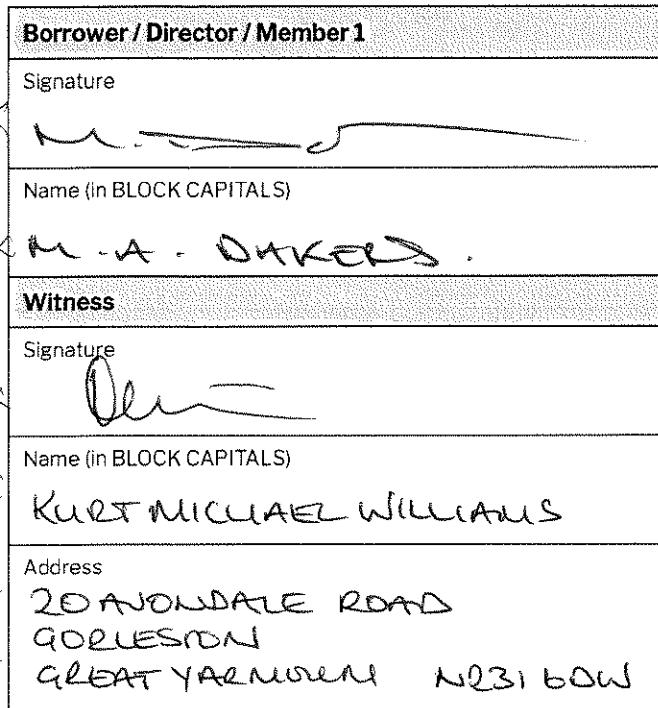 Borrower / Director / Member 1
Signature
Name (in BLOCK CAPITALS)
M. A. DAKERS.
Witness
Signature
Name (in BLOCK CAPITALS)
KURT MICHAEL WILLIAMS
Address
20 AVONDALE ROAD
GORLESTON
GREAT YARMOUTH NR31 6DW